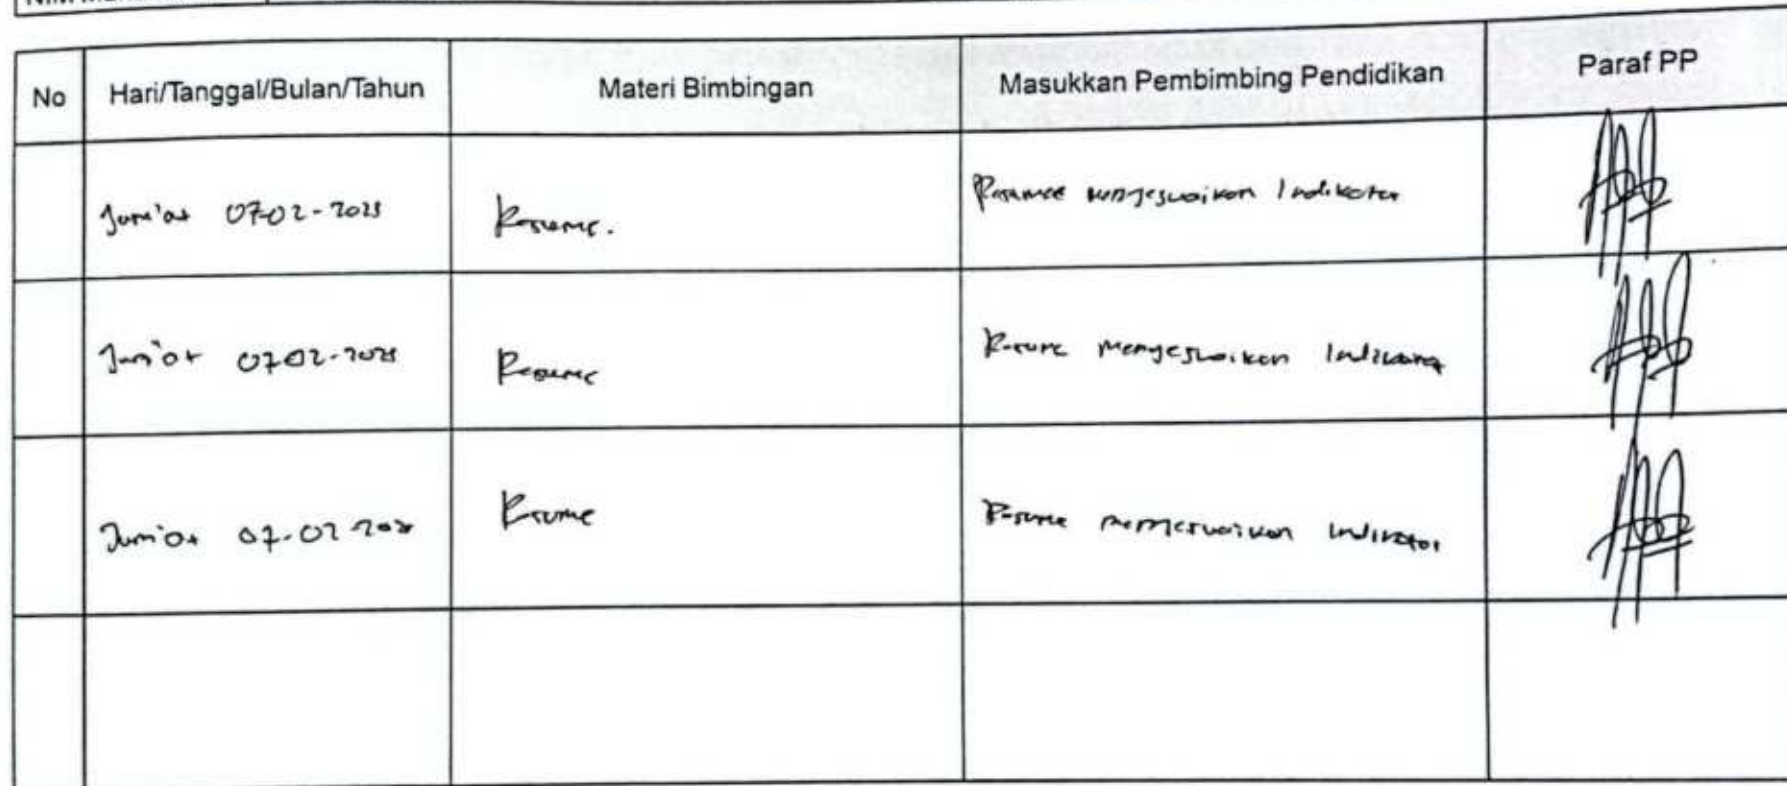 No Hari/Tanggal/Bulan/Tahun Materi Bimbingan Masukkan Pembimbing Pendidikan Paraf PP
Jum'at 07-02-2025 Resume. Resume menyesuaikan Indikator
Jum'at 07-02-2025 Resume Resume menyesuaikan Indikator
Jum'at 07-02-2025 Resume Resume menyesuaikan Indikator